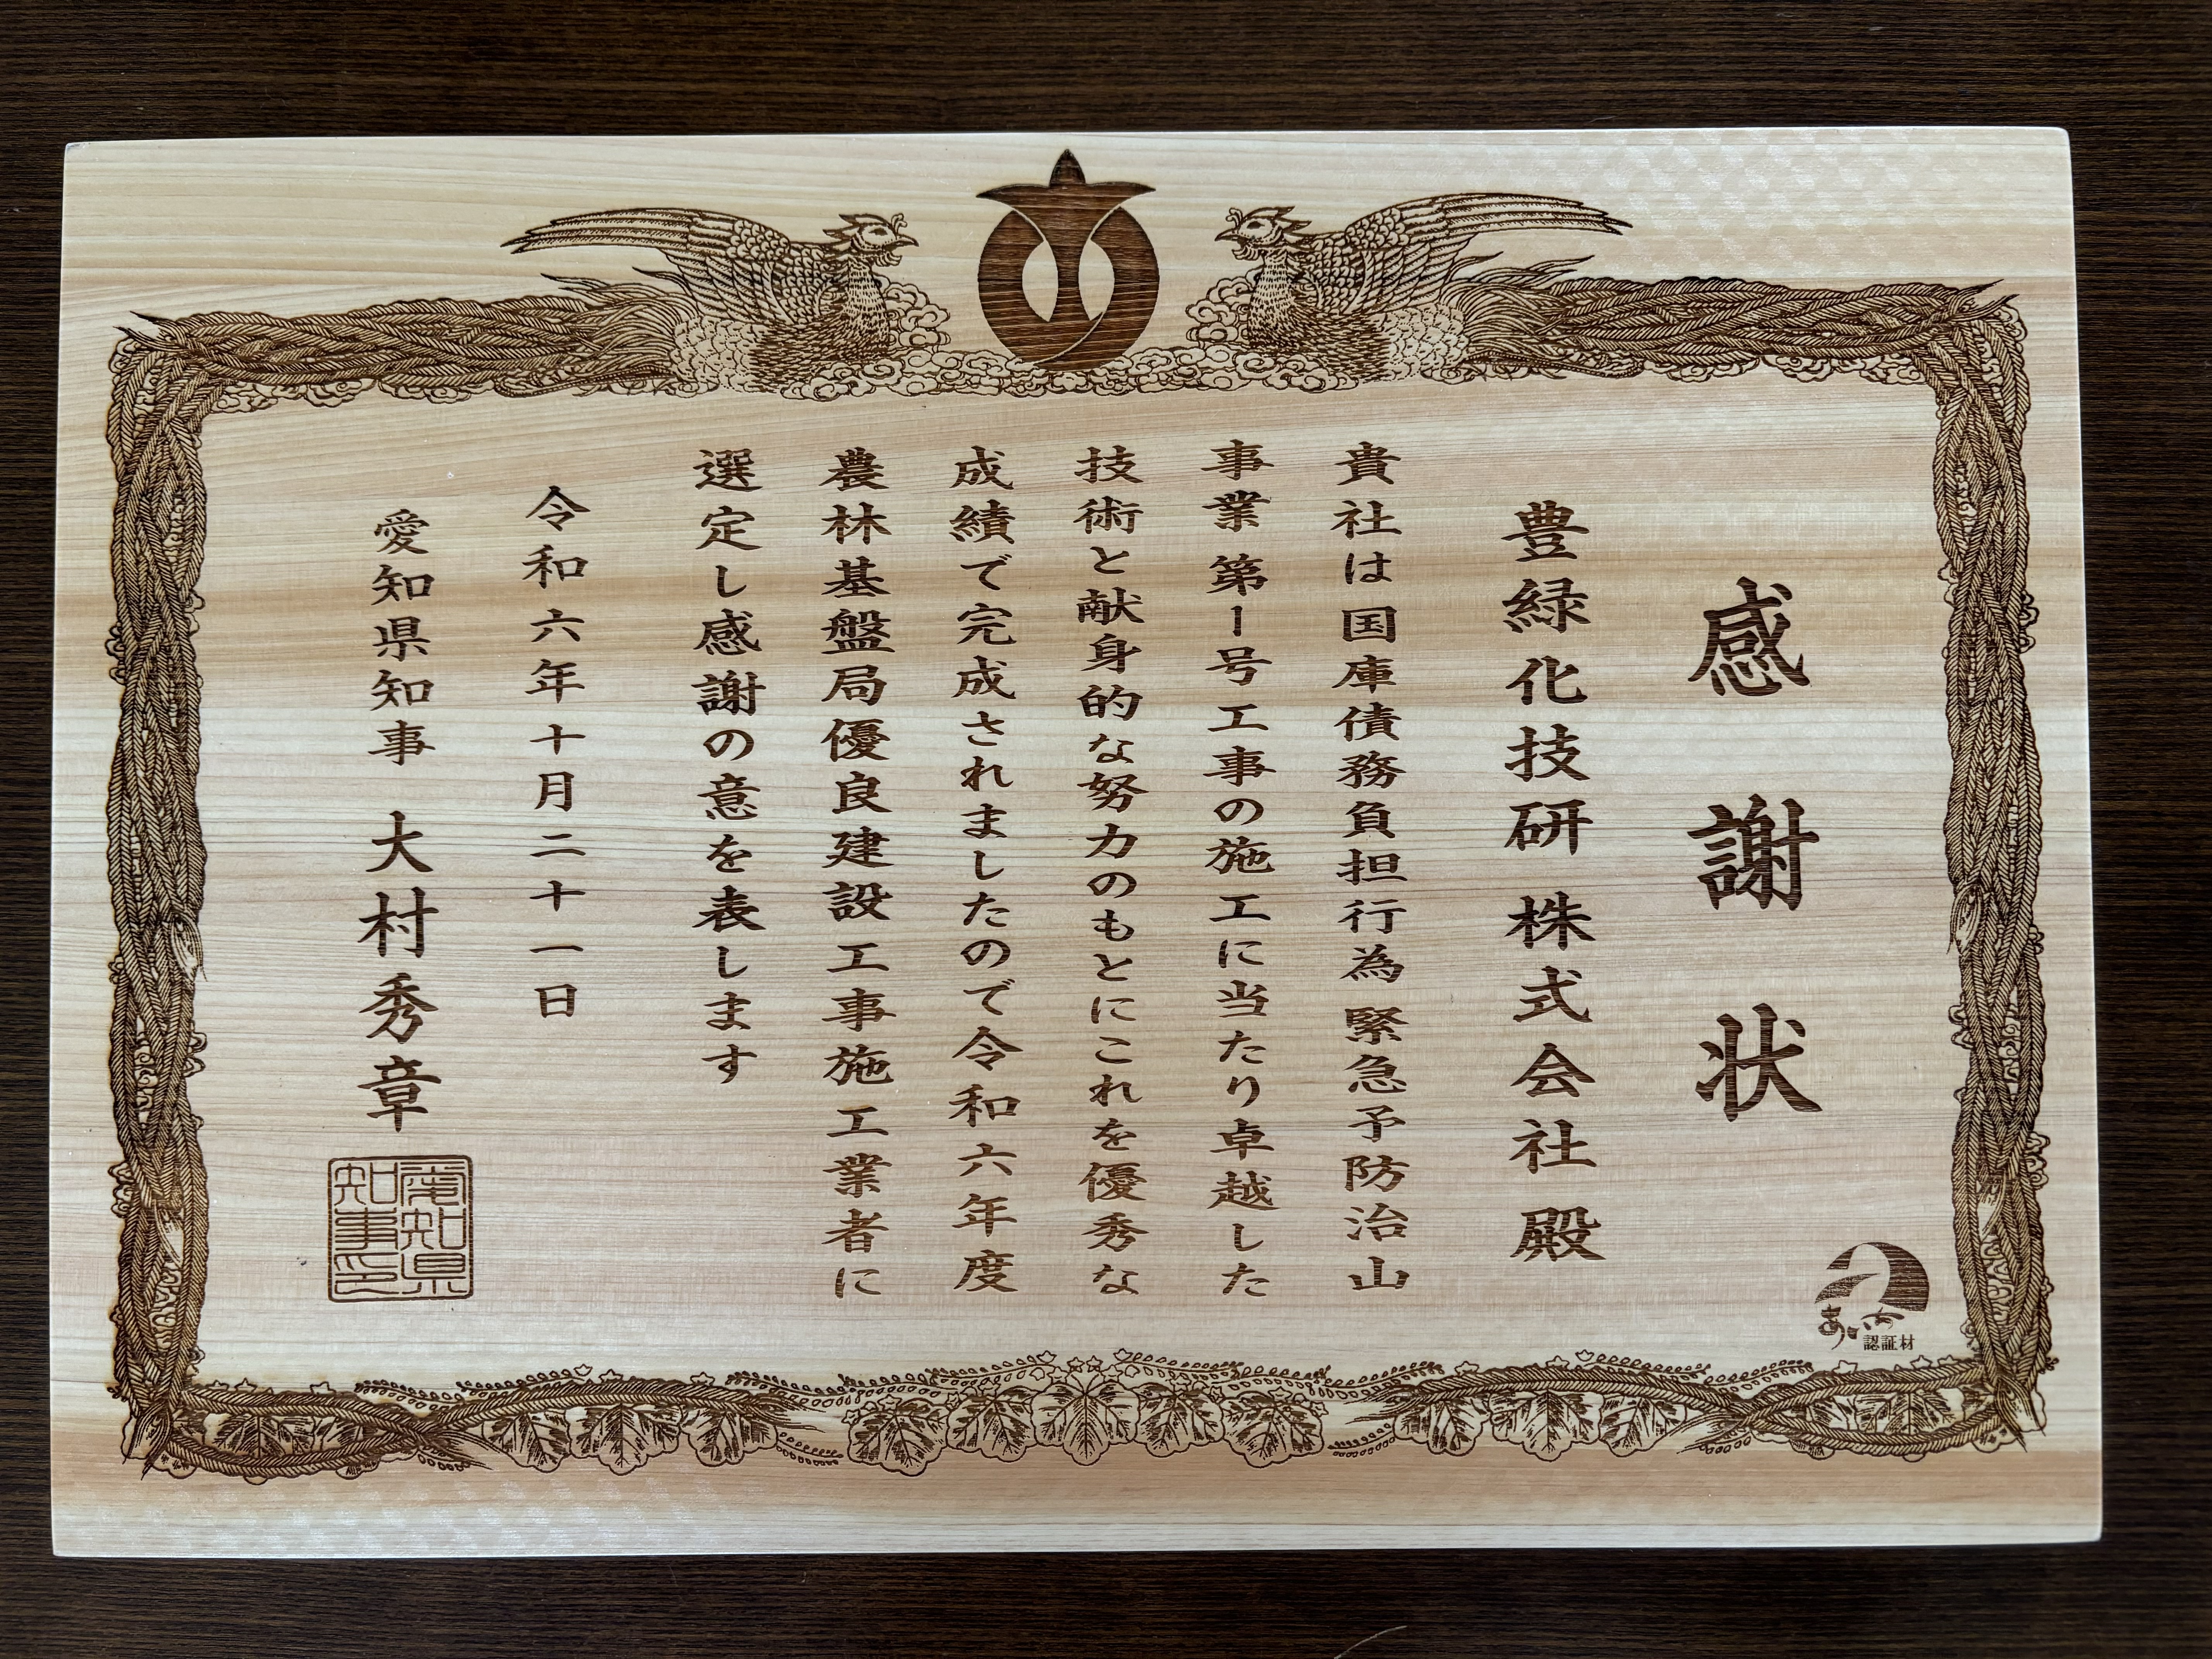 感謝状
豊緑化技研 株式会社 殿
貴社は国庫債務負担行為 緊急予防治山
事業 第1号工事の施工に当たり卓越した
技術と献身的な努力のもとにこれを優秀な
成績で完成されましたので令和六年度
農林基盤局優良建設工事施工業者に
選定し感謝の意を表します
令和六年十月二十一日
愛知県知事 大村秀章
愛知県
知事印
あいち
認証材